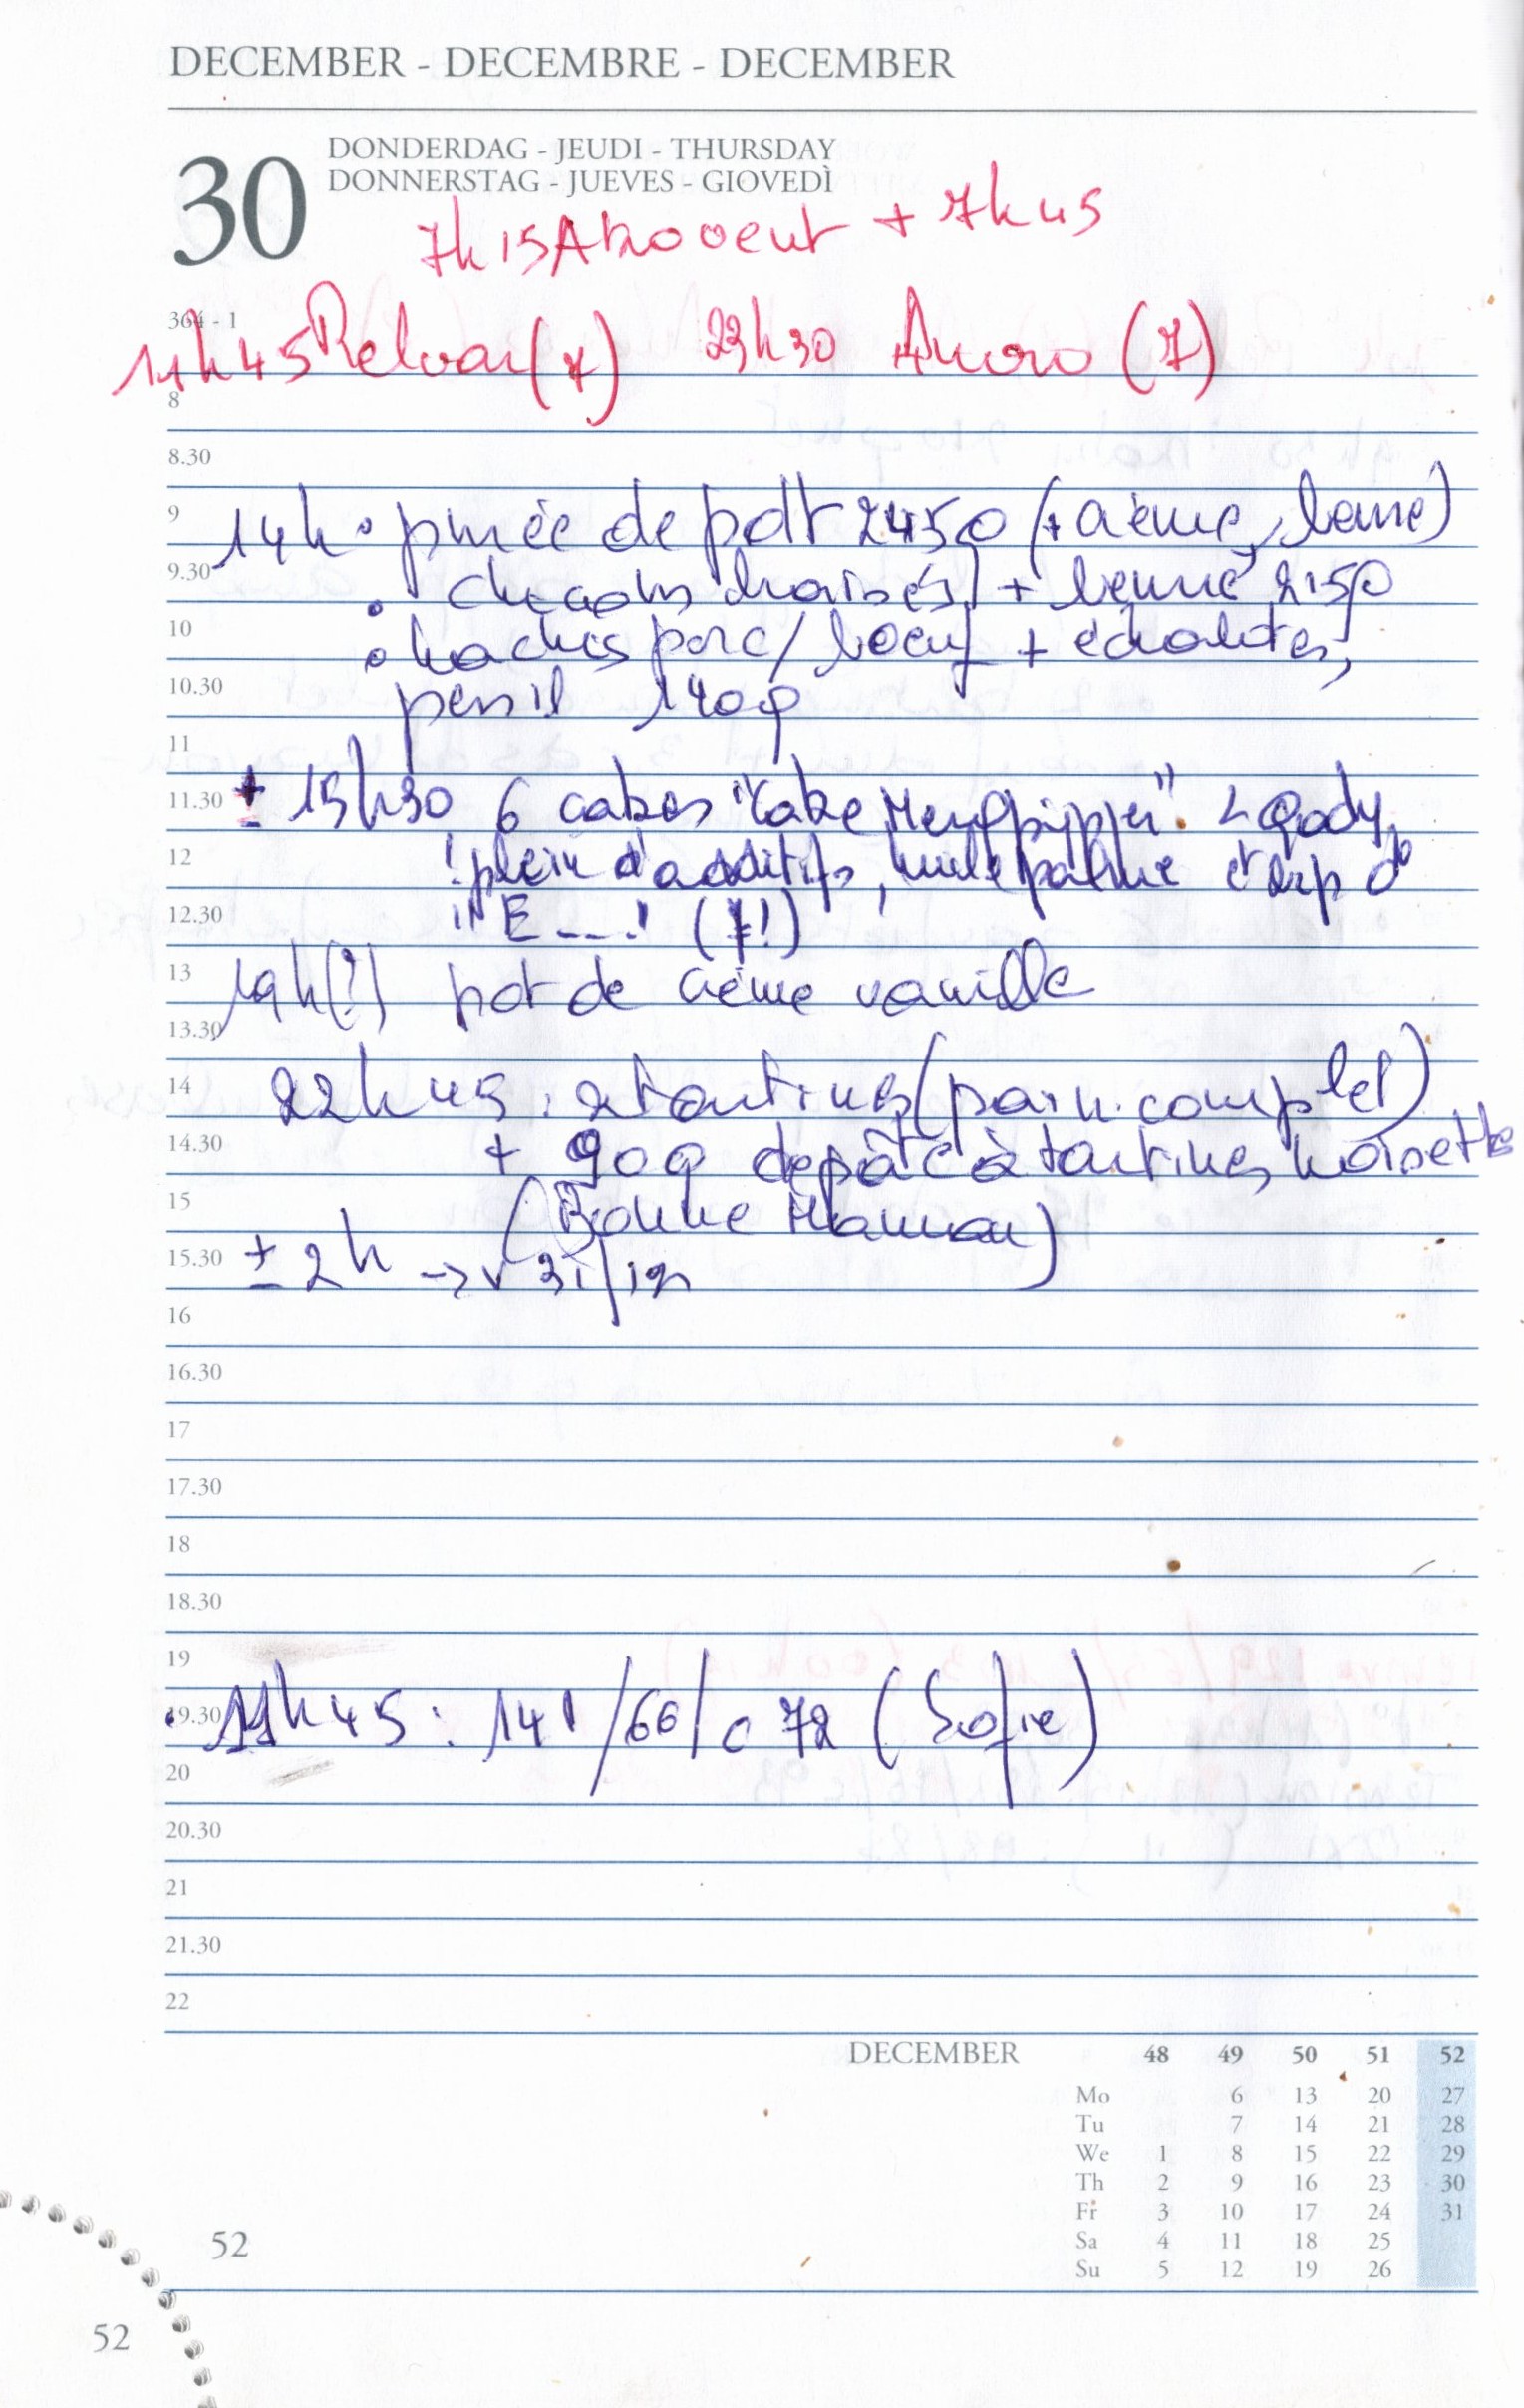 DECEMBER - DECEMBRE - DECEMBER
30
DONDERDAG - JEUDI - THURSDAY
DONNERSTAG - JUEVES - GIOVEDÌ
7h15 Atrovent + 7h45
364 - 1
11h45 Relvar (7) 23h30 (7)
8
8.30
9
14h • purée de pdt 245 (+ crème, beurre)
9.30
• chicons braisés + beurre 215
10
• hachis porc/boeuf + échalotes,
10.30
persil 140g
11
11.30
± 15h30 6 cakes "Cake
12
! plein d'additifs, huile palme et trp d
12.30
" E...! (!)
13
19h(?) pot de crème vanille
13.30
14
22h45 : 2 tartines (pain complet)
14.30
+ 90g de pâte à tartiner noisette
15
(Bonne Maman)
15.30
± 2h -> v 31/12
16
16.30
17
17.30
18
18.30
19
19.30
• 11h45 : 141/66/c 72 (Sofie)
20
20.30
21
21.30
22
DECEMBER 48 49 50 51 52
Mo 6 13 20 27
Tu 7 14 21 28
We 1 8 15 22 29
Th 2 9 16 23 30
Fr 3 10 17 24 31
Sa 4 11 18 25
Su 5 12 19 26
52
52